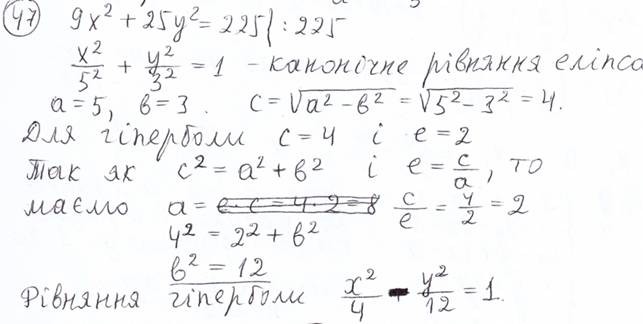 47 9x² + 25y² = 225 | : 225
x²/5² + y²/3² = 1 - канонічне рівняння еліпса
a = 5, b = 3. c = √(a² - b²) = √(5² - 3²) = 4.
Для гіперболи c = 4 і e = 2
Так як c² = a² + b² і e = c/a, то
маємо a = e·c = 4·2 = 8 c/e = 4/2 = 2
4² = 2² + b²
b² = 12
Рівняння гіперболи x²/4 - y²/12 = 1.